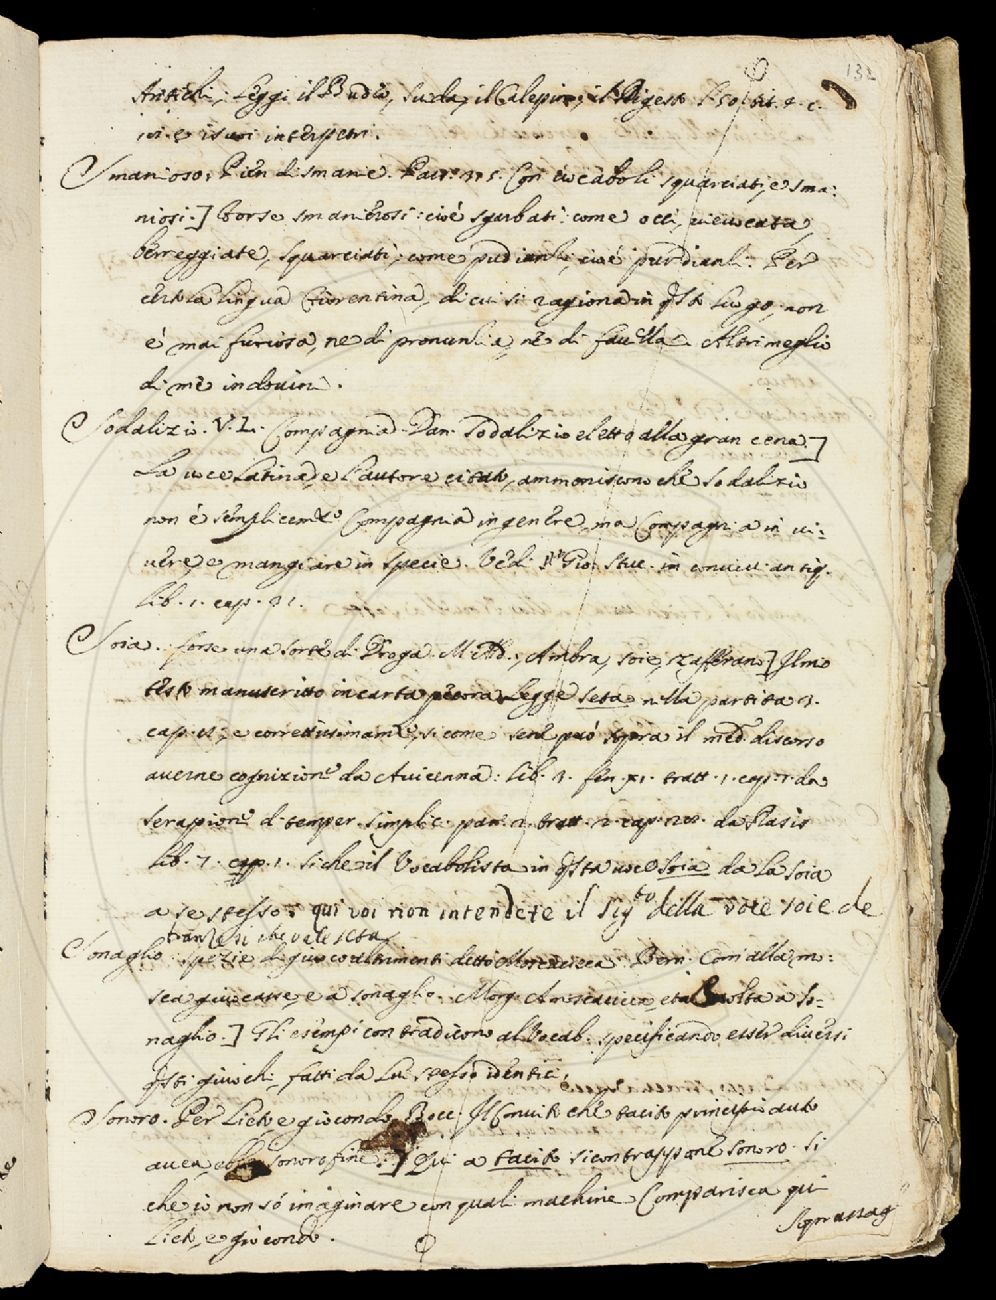 132
Antichi; Leggi il Budeo, Suida, il Calepino, il Digesto l. 50. tit. 4. c.
ivi e i suoi interpetri.
Smanioso. Pien di smanie. Pataf. Con vocaboli squarciati, e sma:
niosi.] Forse smanierosi: cioè sgarbati: come occi, 
berreggiate, squarciati, come pudianli, cioè purdianli. Per
certo la lingua Fiorentina, di cui si ragiona in qsto luogo, non
è mai furiosa, ne di pronunzia, nè di favella. Altri meglio
di me indovini.
Sodalizio. V. L. Compagnia. Dan. Sodalizio eletto alla gran cena.]
La voce Latina, e l'autore citato, ammoniscono che Sodalizio
non è semplicemte Compagnia in genere, ma Compagnia in vi:
vere, e mangiare in specie. Vedi Gio. Stuc. in conviv. antiq.
lib. 1. cap. 31.
Soia. forse una sorte di Droga. M. Ald. Ambra, soie, zafferano] Il mo
testo manuscritto in carta pecora legge seta nella partita 3.
cap. e correttissimamte, si come se ne può sopra il med. discorso
averne cognizione da Avicenna: lib. 3. fen. XI. tratt. 1. cap. 7. da
Serapione di temper. simplic. part. 2. tratt. 2. cap. da Rasis
lib. 7. cap. 1. siche il Vocabolista in qsta voce soia da la soia
a se stesso. qui voi non intendete il sigto della voce soie de
franzesi che vale seta
Sonaglio. spezie di giuoco altrimenti detto Moscacieca. Bern. Com alla mo:
sca giucasse, e a sonaglio. Morg. A moscacieca, e talvolta a so:
naglio.] Gli esempi contradicono al Vocab. specificando esser diversi
qsti giuochi, fatti da lui stesso identici.
Sonoro. Per Lieto e giocondo. Bocc. Il Convito che tacito principio auto
avea, ebbe sonoro fine.] Qui a tacito si contrappone sonoro. si
che io non sò imaginare con quali machine Comparisca qui
Lieto, e giocondo.
Soprassag